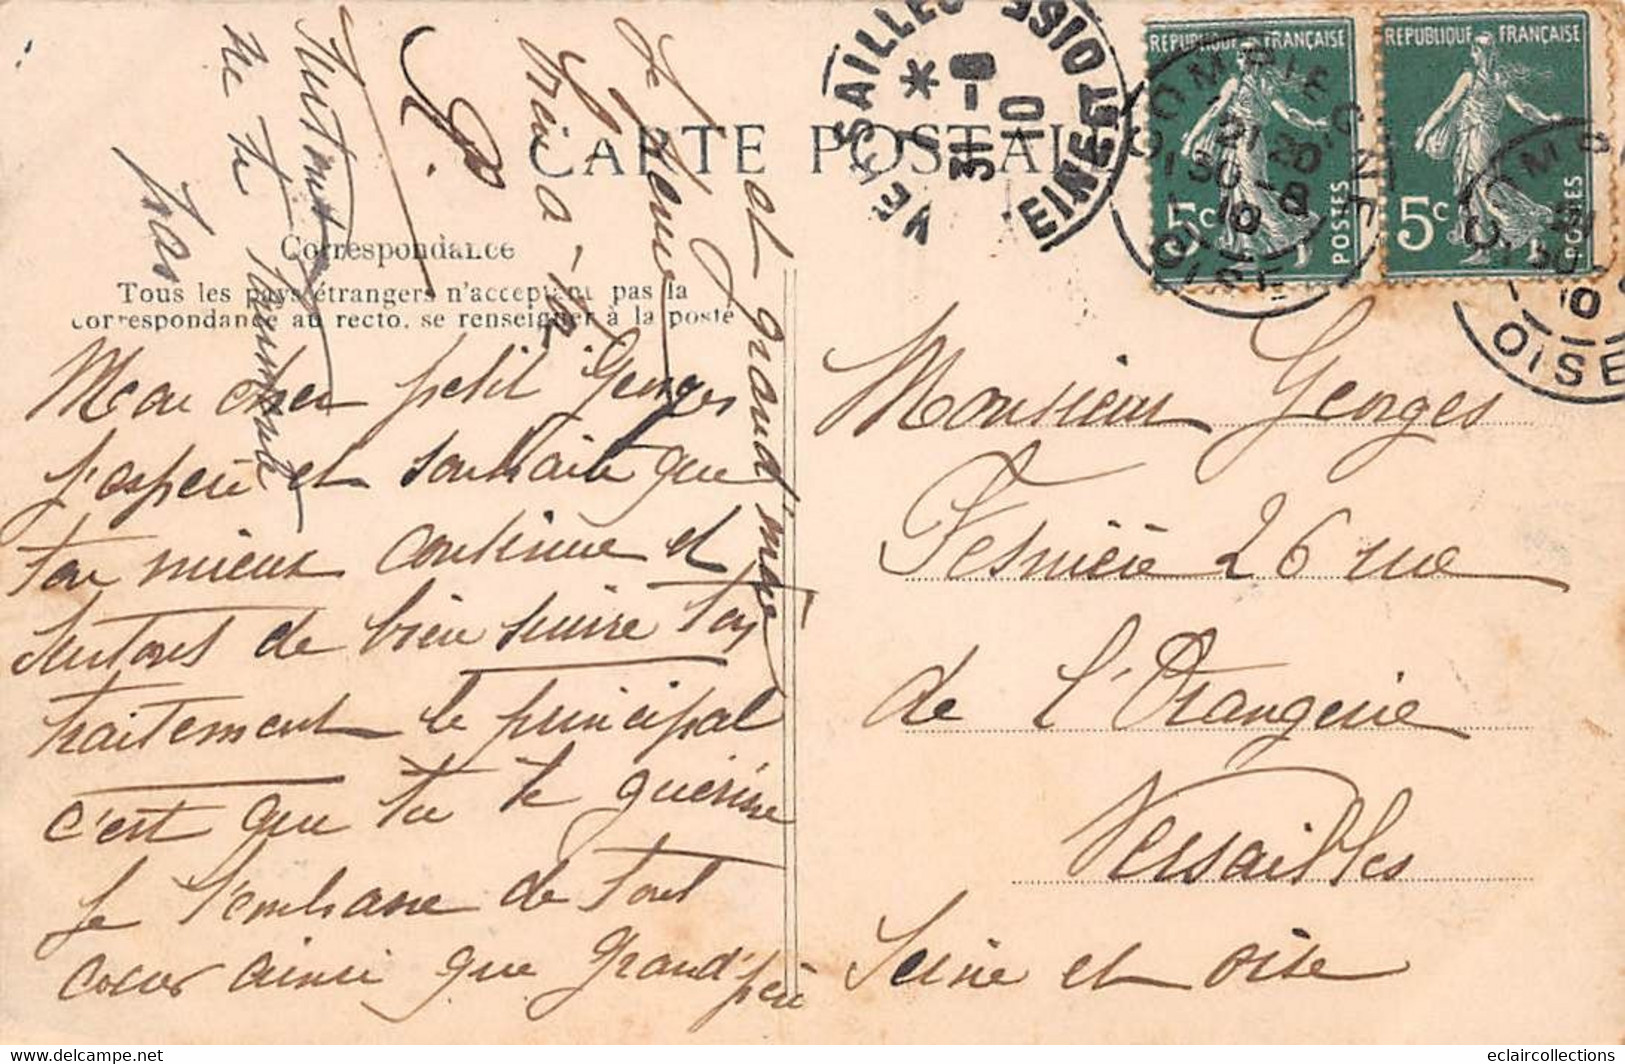 CARTE POSTALE
Correspondance
Tous les pays étrangers n'acceptent pas la
correspondance au recto, se renseigner à la poste
Mon cher petit Georges
j'espère et souhaite que
ton mieux continue et
surtout de bien suivre ton
traitement le principal
c'est que tu te guérisse
je t'embrasse de tout
coeur ainsi que Grand'père
et grand'mère
Je
bien à
Surtout
ne te
pas
RÉPUBLIQUE FRANÇAISE
5c POSTES
RÉPUBLIQUE FRANÇAISE
5c POSTES
VERSAILLES
31-8
10
SEINE ET OISE
COMPIEGNE
30-8
10
OISE
10
OISE
Monsieur Georges
26 rue
de l'Orangerie
Versailles
Seine et oise
eclaircollections